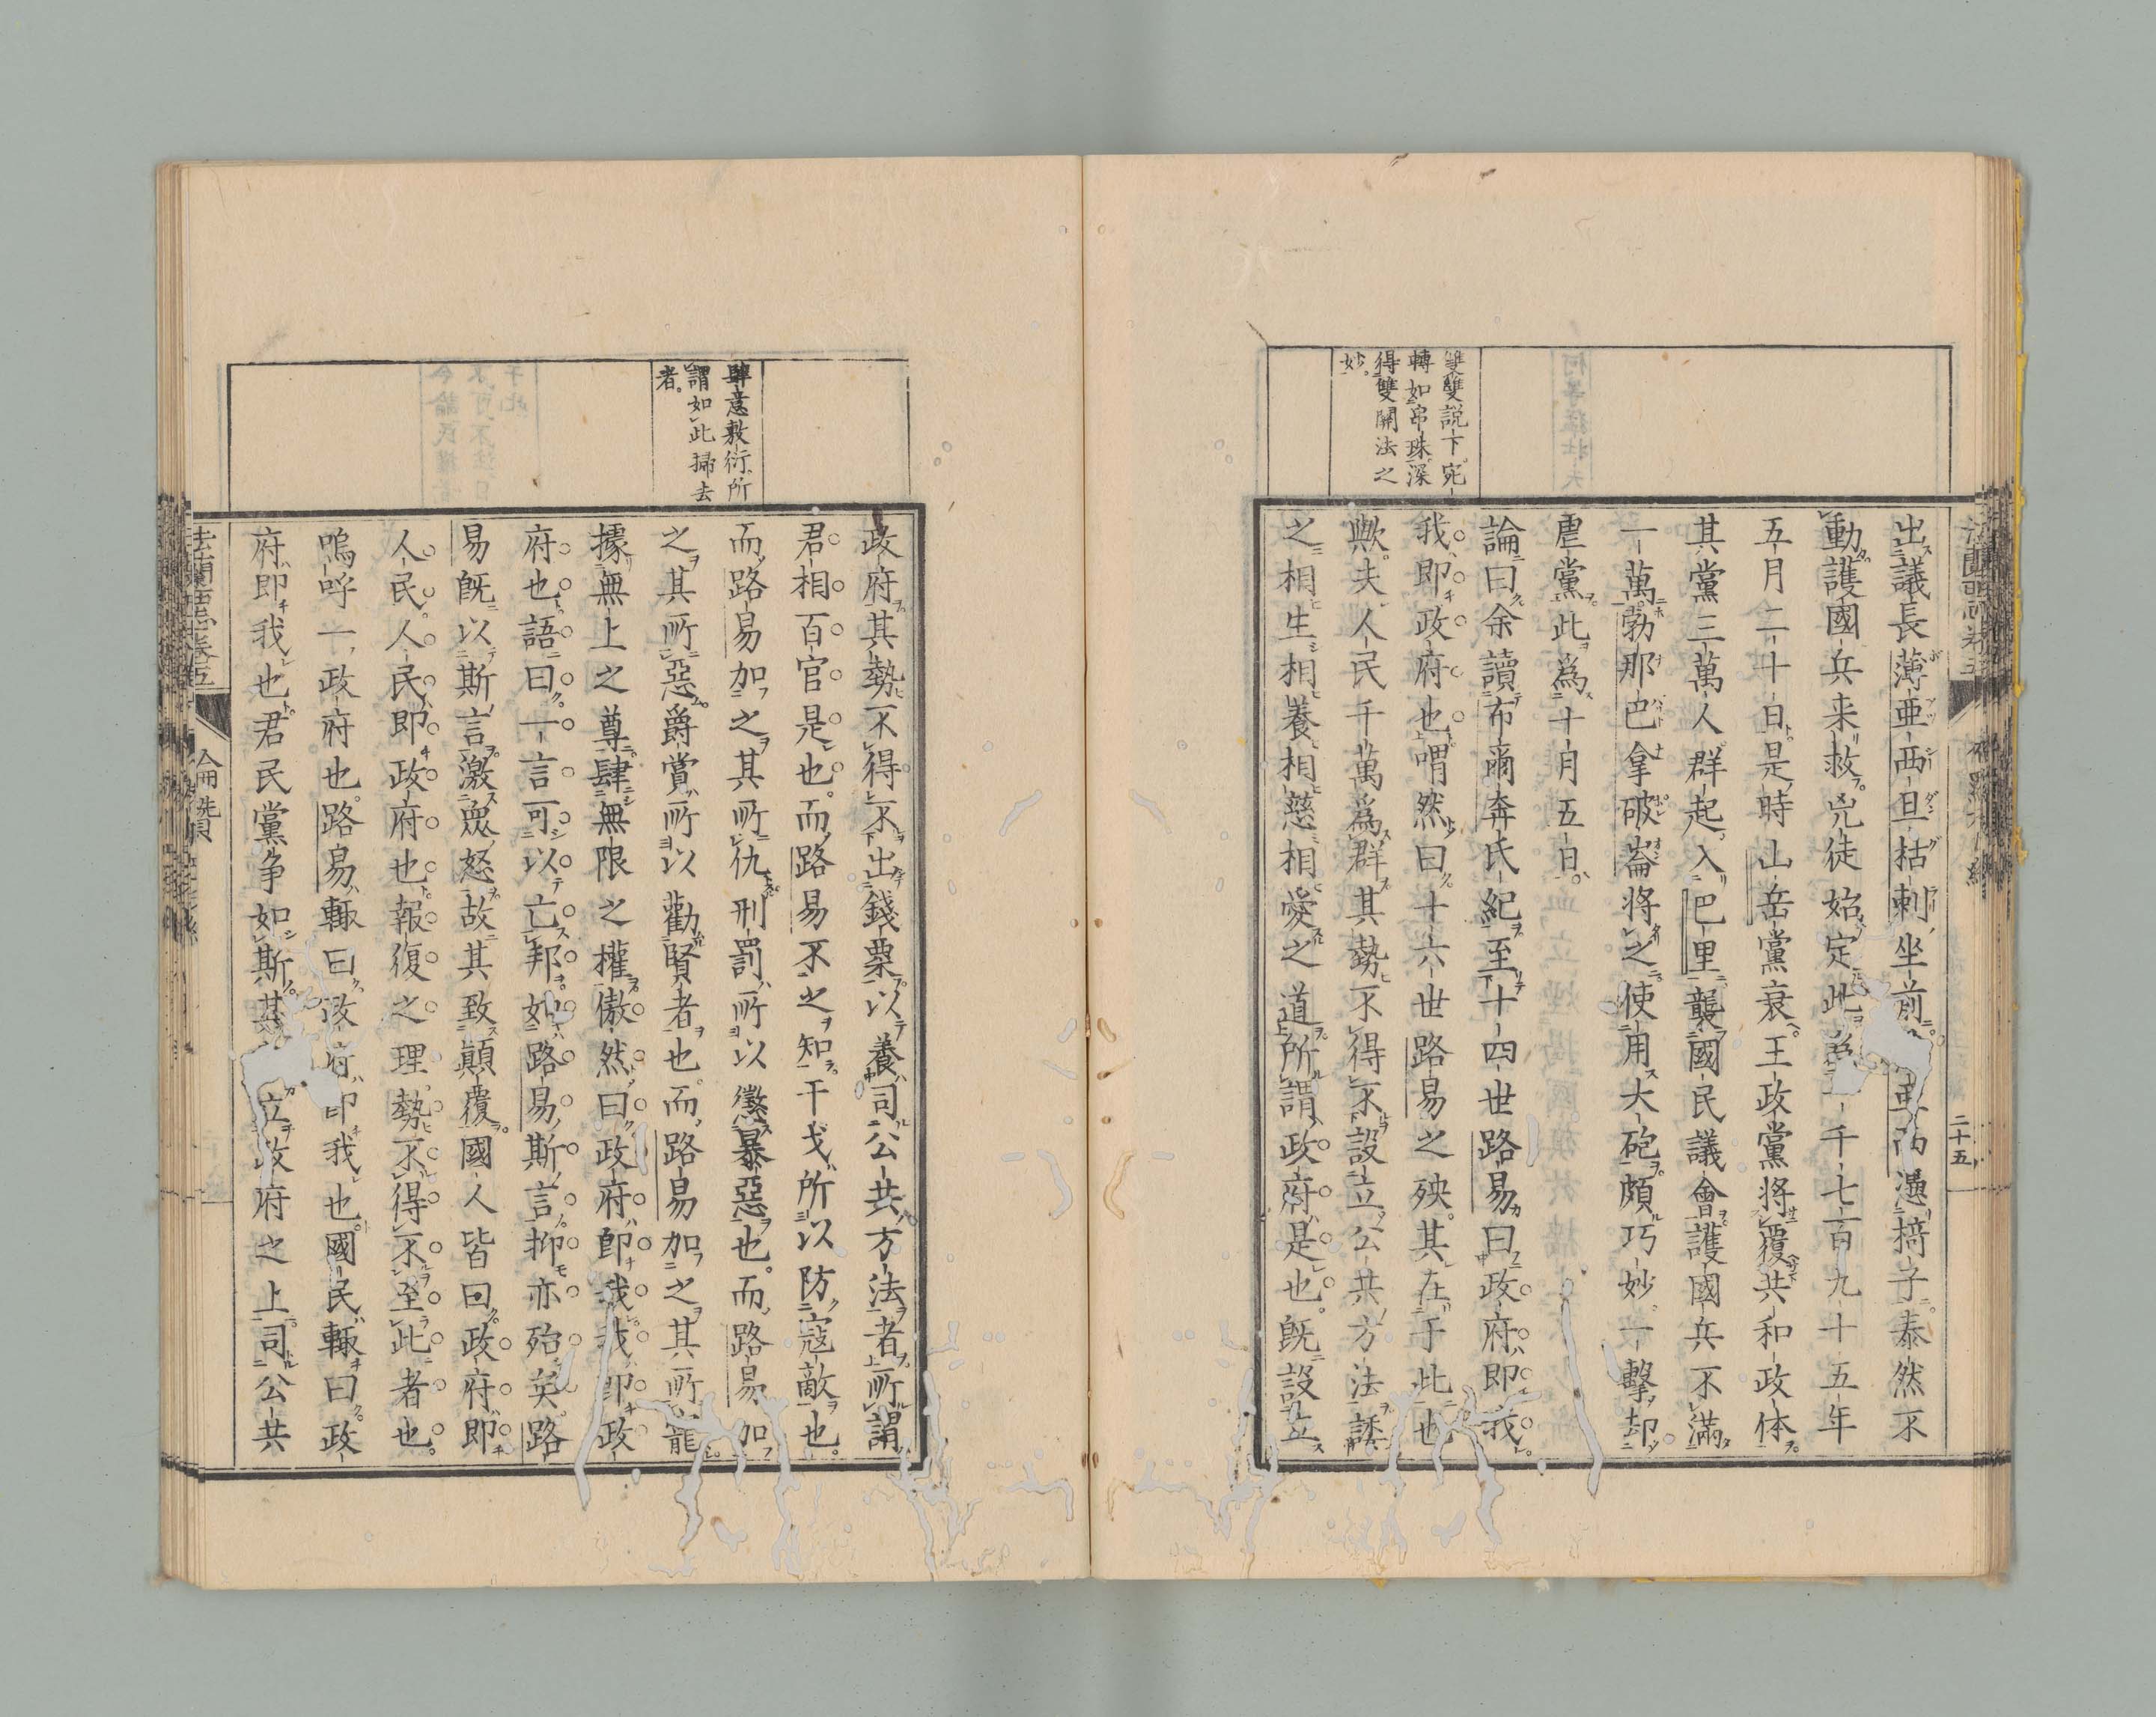 雙雙說下宛
轉如串珠深
得雙關法之
妙
出議長薄亜西旦枯剌坐前亜西憑掎子泰然不
動護國兵来救兇徒始定此為一千七百九十五年
五月二十日是時山岳黨衰王政黨将覆共和政体
其黨三萬人群起入巴里襲國民議會護國兵不滿
一萬勃那巴拿破崙将之使用大砲頗巧妙一擊却
虐黨此為十月五日
論曰余讀布爾奔氏紀至十四世路易曰政府即我
我即政府也喟然曰十六世路易之殃其在于此也
歟夫人民千萬為群其勢不得不設立公共方法誘
之相生相養相慈相愛之道所謂政府是也既設立
二十五
肆意敷衍所
謂如此掃去
者
政府其勢不得不出錢粟以養司公共方法者所謂
君相百官是也而路易不之知干戈所以防寇敵也
而路易加之其所仇刑罰所以懲暴惡也而路易加
之其所惡爵賞所以勸賢者也而路易加之其所寵
據無上之尊肆無限之權傲然曰政府即我我即政
府也語曰一言可以亡邦如路易斯言抑亦殆矣路
易既以斯言激衆怒故其致顛覆國人皆曰政府即
人民人民即政府也報復之理勢不得不至此者也
嗚呼一政府也路易輙曰政府即我也國民輙曰政
府即我也君民黨争如斯其立政府之上司公共
法蘭西志巻五
論賛